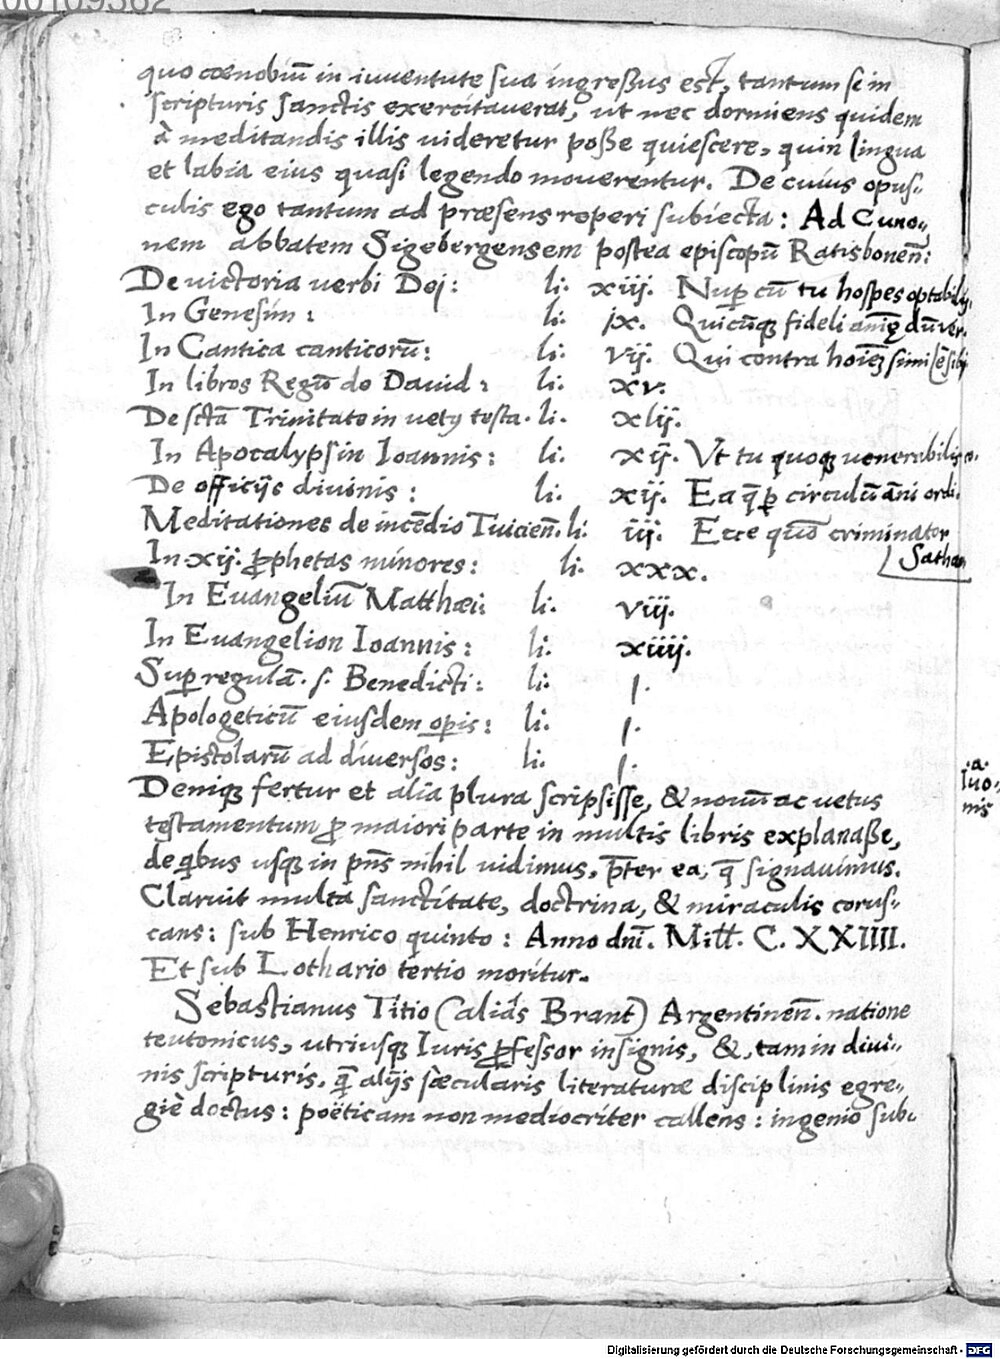 00109382
quo cœnobiū in iuuentute sua ingreßus est, tantum se in
scripturis sanctis exercitauerat, ut nec dormiens quidem
à meditandis illis uideretur poße quiescere, quin lingua
et labia eius quasi legendo mouerentur. De cuius opus-
culis ego tantum ad præsens reperi subiecta: Ad Cuno-
nem abbatem Sigebergensem postea episcopū Ratisbonen̄:
De uictoria uerbi Dei: li. xiij. Nuꝑ cū tu hospes optabilis
In Genesim: li. ix. Quicūqꝫ fideli dū ver.
In Cantica canticorū: li. vij. Qui contra simile sibi
In libros Regū de Dauid: li. xv.
De sctā Trinitate in uetꝰ testa. li. xlij.
In Apocalypsin Ioannis: li. xij. Vt tu quoqꝫ uenerabilis
De officijs diuinis: li. xij. Ea q̄ ꝑ circulū āni ordi.
Meditationes de incēdio Tuicien̄. li: iij. Ecce quō criminator
Sathan
In xij. ꝓphetas minores: li. xxx.
In Euangeliū Matthæi: li. viij.
In Euangelion Ioannis: li. xiiij.
Suꝑ regulā. s. Benedicti: li. j.
Apologeticū eiusdem oꝑis: li. j.
Epistolarū ad diuersos: li. j.
Deniqꝫ fertur et alia plura scripsisse, & nouū ac uetus
testamentum ꝓ maiori parte in multis libris explanaße,
de qibus usqꝫ in pn̄s nihil uidimus, p̄ter ea, q̄ signauimus.
Claruit multa sanctitate, doctrina, & miraculis corus-
cans: sub Henrico quinto: Anno dnī. Mill. C. XXIIII.
Et sub Lothario tertio moritur.
Sebastianus Titio (aliàs Brant) Argentinen̄. natione
teutonicus, utriusqꝫ Iuris ꝓfessor insignis, &, tam in diui-
nis scripturis, q̄ alijs sæcularis literaturæ disciplinis egre-
giè doctus: poëticam non mediocriter callens: ingenio sub-
.a.
nis
Digitalisierung gefördert durch die Deutsche Forschungsgemeinschaft - DFG